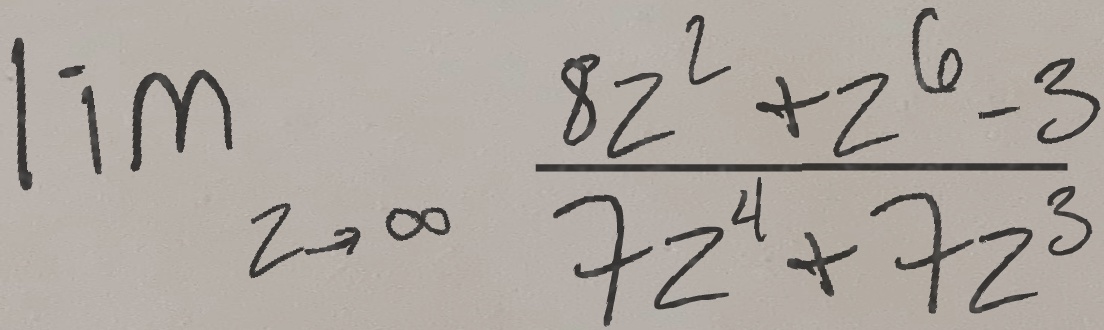 lim z→∞ (8z² + z⁶ - 3) / (7z⁴ + 7z³)